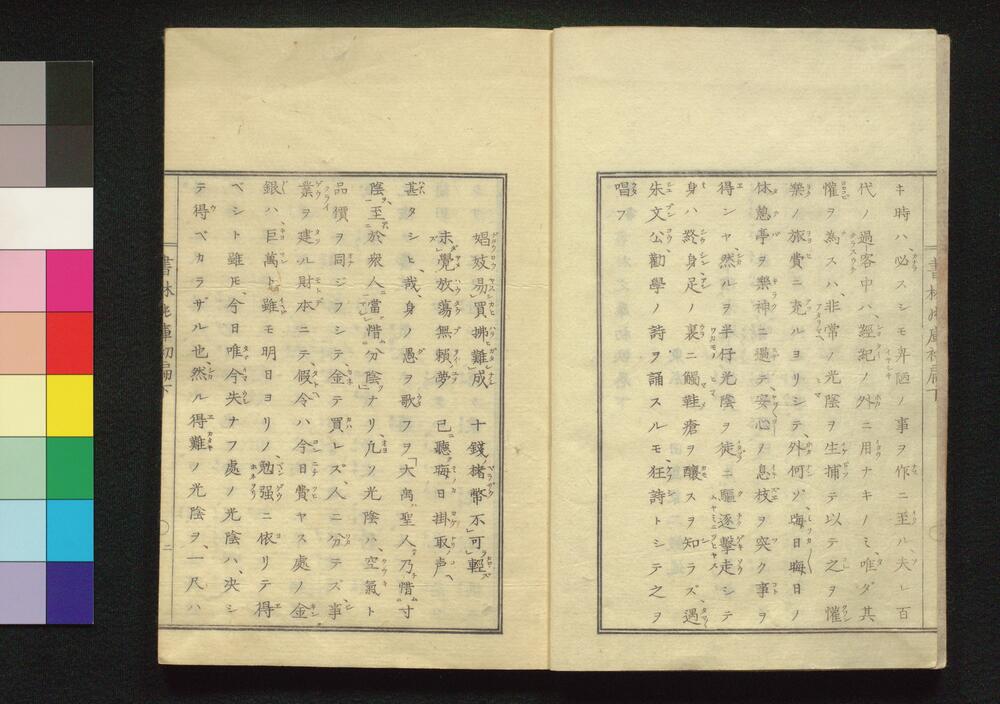 キ時ハ、必スシモ卑陋ノ事ヲ作ニ至ル夫レ百
代ノ過客中ハ、經紀ノ外ニ用ナキノミ、唯ダ其
懽ヲ為スハ、非常ノ光陰ヲ生捕テ以テ之ヲ懽
樂ノ旅費ニ充ルヨリシテ、外何ゾ、晦日晦日ノ
休憩亭ヲ樂神ニ過デ安心ノ息杖ヲ突ク事ヲ
得ンヤ、然ルヲ半仔光陰ヲ徒ニ驅逐擊走シテ
身ハ終身足ノ裏ニ觸鞋瘡ヲ釀スヲ知ラズ、遇
朱文公勸學ノ詩ヲ誦スルモ、狂詩トシテ之ヲ
唱フ
娼妓易買拂難成 十錢楮幣不可輕
未覺放蕩無賴夢 已聽晦日掛取声
甚タシヒ哉、身ノ愚ヲ歌フヲ「大禹聖人乃惜寸
陰至於衆人當惜分陰」ナリ、凡ソ光陰ハ、空氣ト
品價ヲ同ジフシテ金テ買レズ、人ニ分テズ、事
業ヲ建ル財本ニテ、假令ハ今日費ヤス處ノ金
銀ハ、巨萬ト雖モ明日ヨリノ勉强ニ依リテ得
ベシト雖モ今日唯今失ナフ處ノ光陰ハ、決シ
テ得ベカラザル也然ル得難ノ光陰ヲ、一尺ハ
二